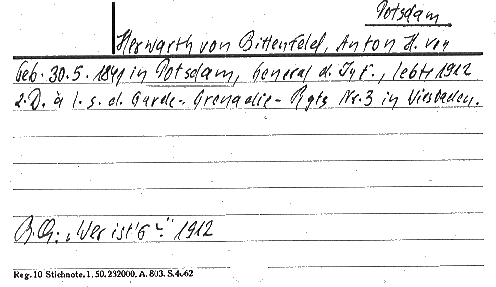 Potsdam
Herwarth von Bittenfeld, Anton H. von
Geb. 30.5.1841 in Potsdam, General d. Inf., lebte 1912
z.D. à l. s. d. Garde-Grenadie-Rgts Nr.3 in Wiesbaden.
B.Q: „Wer ist's“ 1912
Reg. 10 Stichnote. 1. 50. 232000. A. 803. S. 4. 62